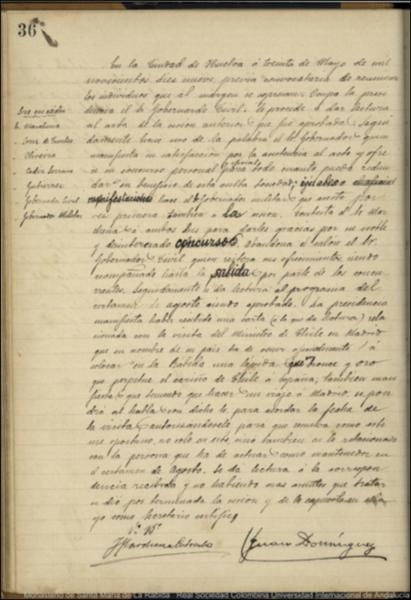 36
En la Ciudad de Huelva á treinta de Mayo de mil
novecientos diez nueve, previa convocatoria se reunieron
los individuos que al margen se expresan. Ocupa la presi
dencia el Sr. Gobernador Civil. Se procede a dar lectura
al acta de la sesion anterior que fué aprobada. Segui
damente hace uso de la palabra el Sr. Gobernador quien
manifiesta su satisfacción por la asistencia al acto y ofre
ce su concurso personal y oficial para todo cuanto pueda redun
dar en beneficio de esta entidad
manifestaciones hace el Sr. Gobernador militar que asiste por
vez primera tambien a la sesion. Contesta el Sr. Mar
chena á ambos Sres para darles gracias por su noble
y desinteresado concurso. Abandona el salon el Sr.
Gobernador Civil quien reitera sus ofrecimientos siendo
acompañado hasta la salida por parte de los concu
rrentes. Seguidamente se da lectura al programa del
certamen de agosto siendo aprobado. La presidencia
manifiesta haber recibido una carta (á la que da lectura) rela
cionada con la visita del Ministro de Chile en Madrid
que en nombre de su pais ha de venir á
colocar en la Rabida una lapida de bronce y oro
que perpetue el cariño de Chile á España; tambien mani
fiesta que teniendo que hacer un viaje á Madrid se pon
drá al habla con dicho Sr. para acordar la fecha de
la visita autorizandosele para que resuelva como esti
me oportuno, no solo en esto, sino tambien en lo relacionado
con la persona que ha de actuar como mantenedor en
el certamen de Agosto. Se da lectura á la correspon
dencia recibida y no habiendo mas asuntos que tratar
se dió por terminada la sesion y de lo expuesto en ella
yo como Secretario certifico
Sres que asisten
Sr. Marchena
Oliveira
Cadiz Serrano
Gutierrez
Gobernador Civil
Gobernador Militar
Vº Bº
J. Marchena Colombo
Dominguez
Monasterio de Santa María de La Rábida · Real Sociedad Colombina Universidad Internacional de Andalucía